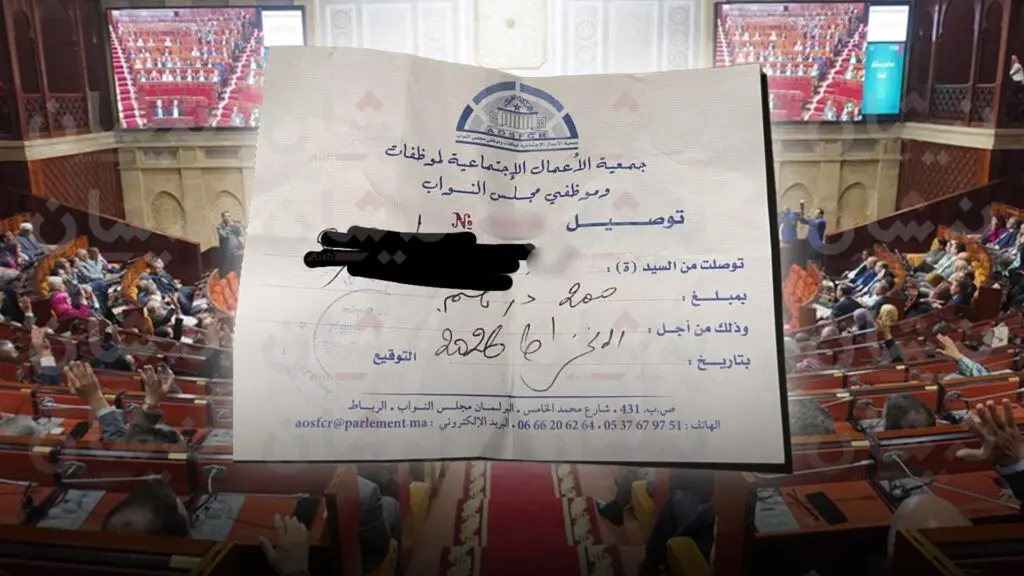 AOSFCR
جمعية الأعمال الإجتماعية لموظفات وموظفي مجلس النواب
جمعية الأعمال الإجتماعية لموظفات
وموظفي مجلس النواب
توصيل №
توصلت من السيد (ة) :
بمبلغ : 200 درهم
وذلك من أجل : الانخراط 2026
بتاريخ : التوقيع
ص.ب. 431 ، شارع محمد الخامس ، البرلمان مجلس النواب ، الرباط
الهاتف : 05 37 67 97 51 ، 06 66 20 62 64 ، البريد الإلكتروني : aosfcr@parlement.ma
نيشان